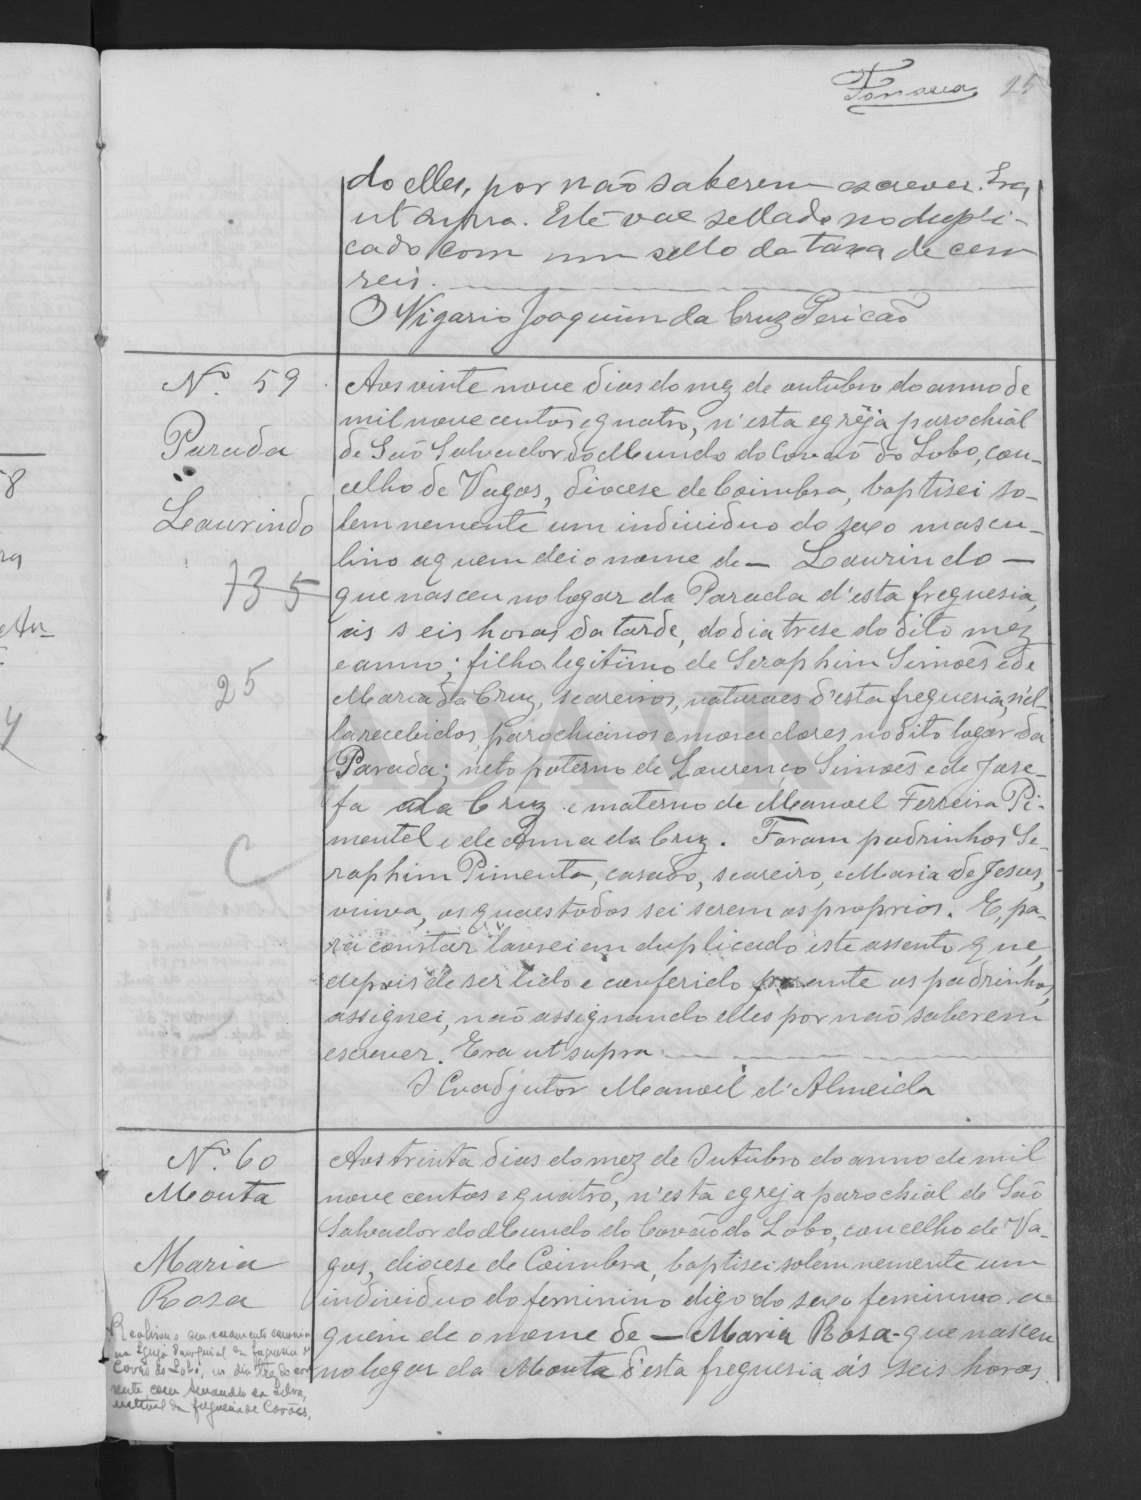 Fonseca 25
do elles, por não saberem escrever. Era
ut supra. Este vae sellado no dupli-
cado com um sello da taxa de cem
reis.
O Vigario Joaquim da Cruz Pericão
Nº. 59
Parada
Laurindo
135
25
C
Aos vinte nove dias do mez de outubro do anno de
mil nove centos e quatro, n'esta egreja parochial
de São Salvador do Mundo do Covão do Lobo, con-
celho de Vagos, diocese de Coimbra, baptisei so-
lemnemente um individuo do sexo mascu-
lino a quem dei o nome de — Laurindo —
que nasceu no logar da Parada d'esta freguesia,
ás seis horas da tarde, do dia trese do dito mez
e anno; filho legitimo de Seraphim Simões e de
Maria da Cruz, seareiros, naturaes d'esta freguesia, n'el-
la recebidos, parochianos e moradores no dito logar da
Parada; neto paterno de Lourenço Simões e de Jose-
fa da Cruz e materno de Manoel Ferreira Pi-
mentel e de Anna da Cruz. Foram padrinhos Se-
raphim Pimenta, casado, seareiro, e Maria de Jesus,
viuva, os quaes todos sei serem os proprios. E, pa-
ra constar lavrei em duplicado este assento que,
depois de ser lido e conferido perante os padrinhos,
assignei, não assignando elles por não saberem
escrever. Era ut supra.
O Coadjutor Manoel d'Almeida
Nº. 60
Mouta
Maria
Rosa
Aos trinta dias do mez de Outubro do anno de mil
nove centos e quatro, n'esta egreja parochial de São
Salvador do Mundo do Covão do Lobo, concelho de Va-
gos, diocese de Coimbra, baptisei solemnemente um
individuo do feminino digo do sexo feminino a
quem dei o nome de — Maria Rosa - que nasceu
no logar da Mouta d'esta freguesia ás seis horas
Realisou o seu casamento canonico
na Egreja Parochial da freguesia do
Covão do Lobo, no dia tres do cor
rente, com
natural da freguesia de Covões.
8
ADAVR